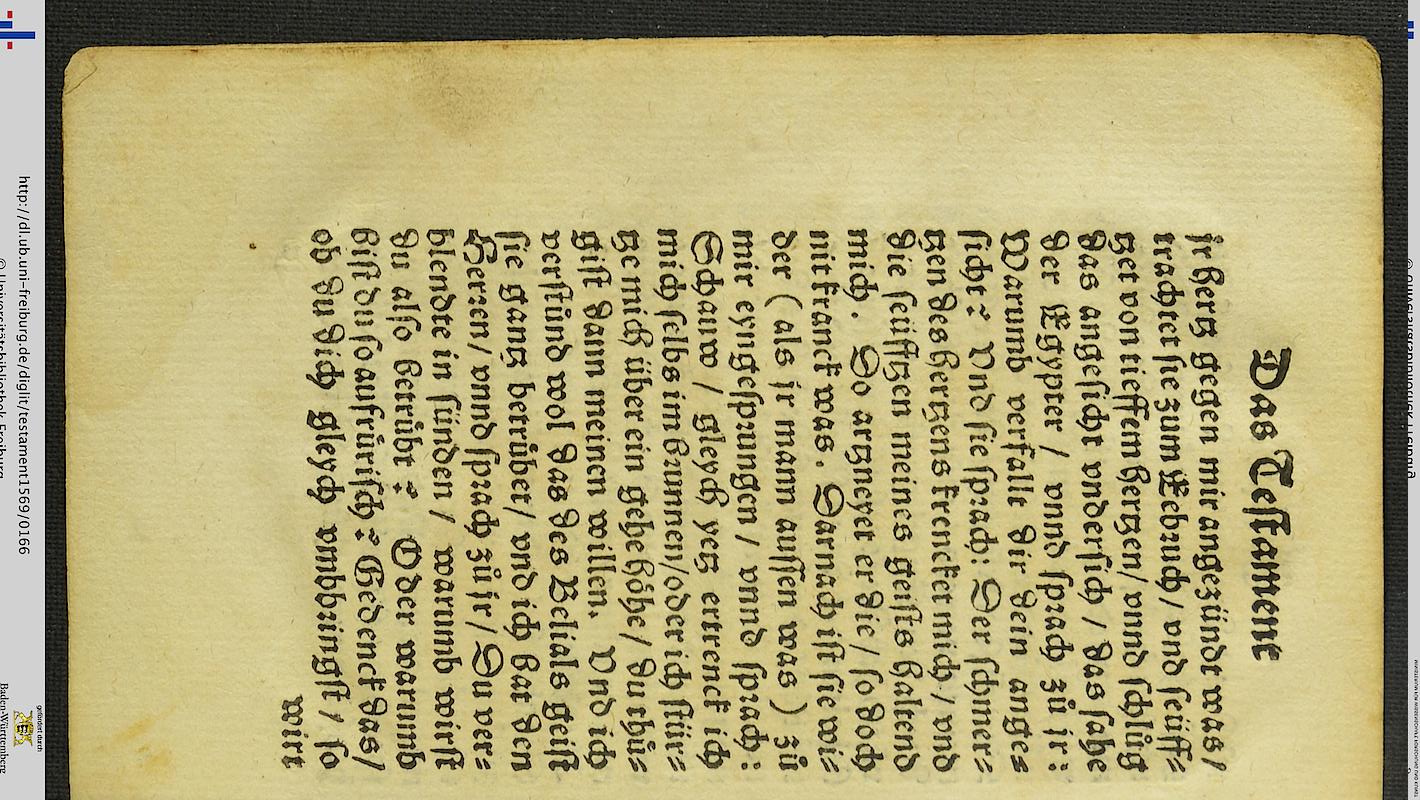 Das Testament
jr hertz gegen mir angezündt was/
trachtet sie zum Eebruch/ vnd seüff⸗
zet von tieffem hertzen/ vnnd schlůg
das angesicht vndersich / das sahe
der Egypter / vnnd sprach zů jr:
Warumb verfallt dir dein ange⸗
sicht? Vnd sie sprach: Der schmer⸗
tzen des hertzens krencket mich / vnd
die seüfftzen meines geists haltend
mich. So artzneyet er die / so doch
nit kranck was. Darnach ist sie wi⸗
der (als jr mann aussen was) zů
mir eyngesprungen / vnnd sprach:
Schauw / gleych yetz ertrenck ich
mich selbs im brunnen/oder ich stür⸗
tze mich über ein gehe höhe/ du thů⸗
gist dann meinen willen. Vnd ich
verstůnd wol das des Belials geist
sie gantz betrůbet/ vnd ich bat den
Herren/ vnnd sprach zů jr / Du ver⸗
blendte in sünden / warumb wirst
du also betrůbt? Oder warumb
bist du so aufrürisch? Gedenck das/
ob du dich gleych vmbbringst / so
wirt
http://dl.ub.uni-freiburg.de/diglit/testament1569/0166
© Universitätsbibliothek Freiburg
gefördert durch
Baden-Württemberg